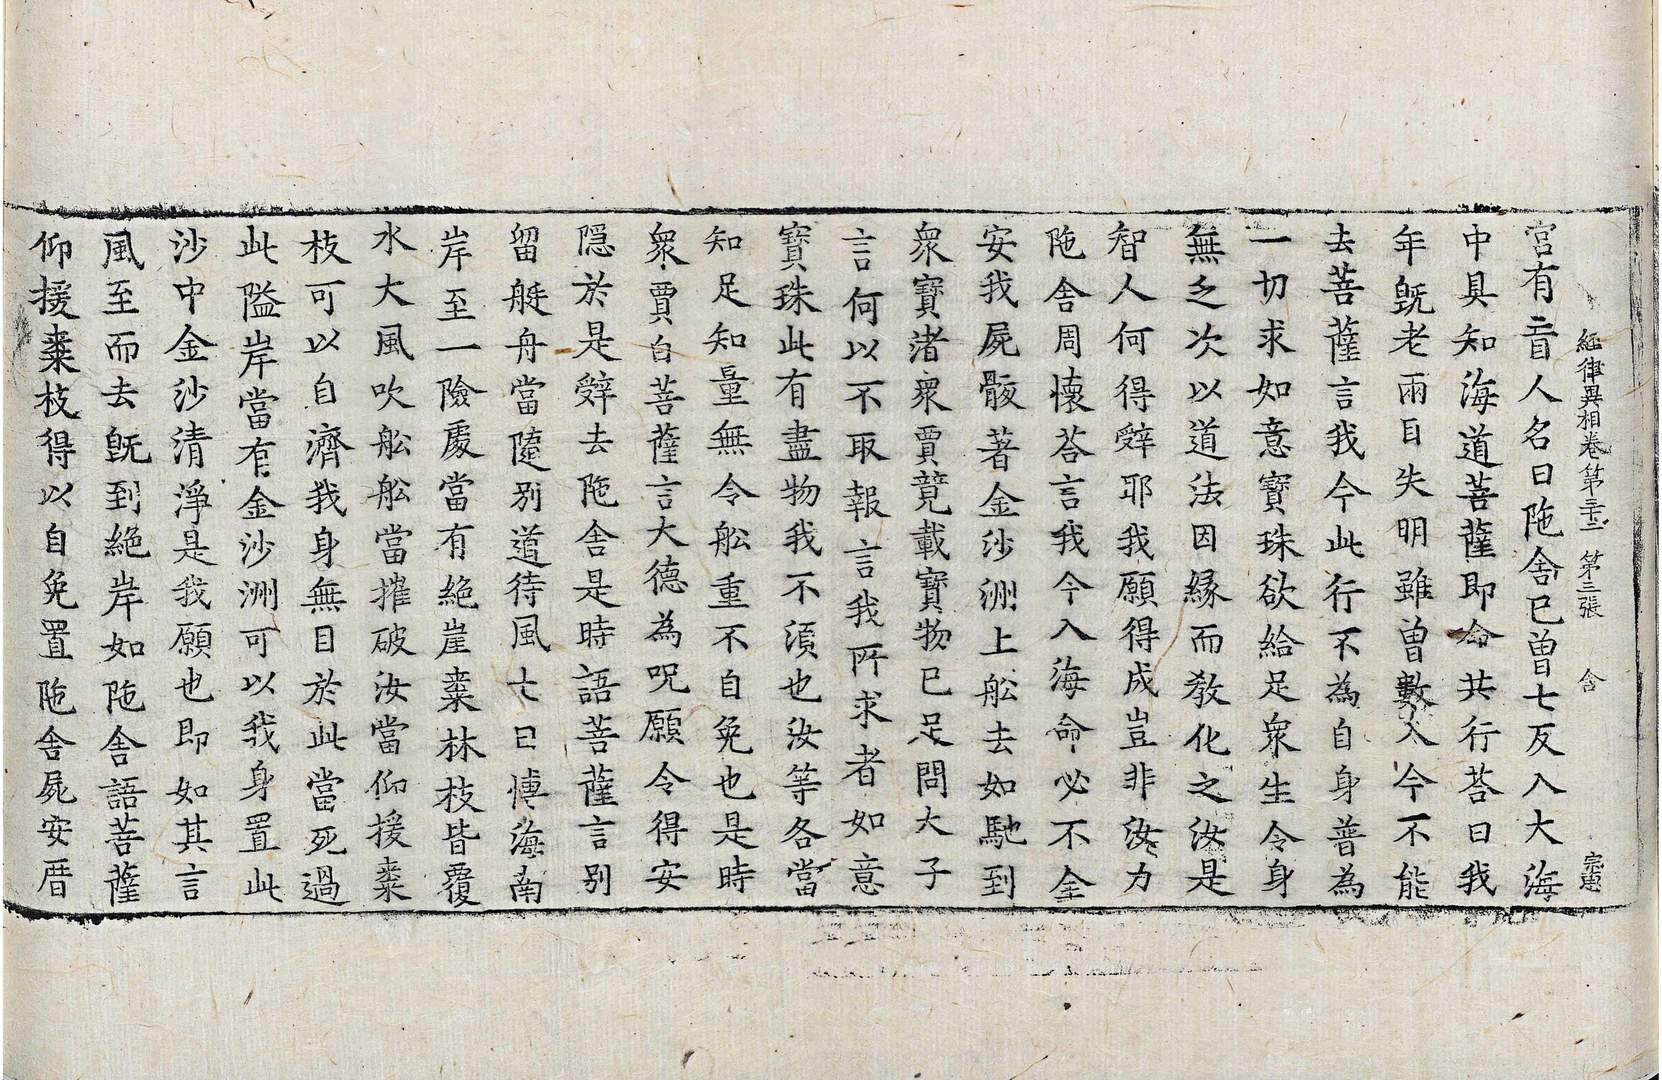 經律異相卷第三十二　第三張　舍　宗進
宮有盲人名曰陁舍已曾七反入大海
中具知海道菩薩即命共行荅曰我
年旣老兩目失明雖曾數入今不能
去菩薩言我今此行不為自身普為
一切求如意寶珠欲給足眾生令身
無乏次以道法因緣而教化之汝是
智人何得辝耶我願得成豈非汝力
陁舍周懷荅言我今入海命必不全
安我屍骸著金沙洲上舩去如馳到
眾寶渚眾賈競載寶物已足問大子
言何以不取報言我所求者如意
寶珠此有盡物我不湏也汝等各當
知足知量無令舩重不自免也是時
眾賈白菩薩言大德為呪願令得安
隱於是辝去陁舍是時語菩薩言別
留艇舟當隨別道待風七日博海南
岸至一險處當有絶崖棗林枝皆覆
水大風吹舩舩當摧破汝當仰援棗
枝可以自濟我身無目於此當死過
此隘岸當有金沙洲可以我身置此
沙中金沙清淨是我願也即如其言
風至而去旣到絶岸如陁舍語菩薩
仰援棗枝得以自免置陁舍屍安厝